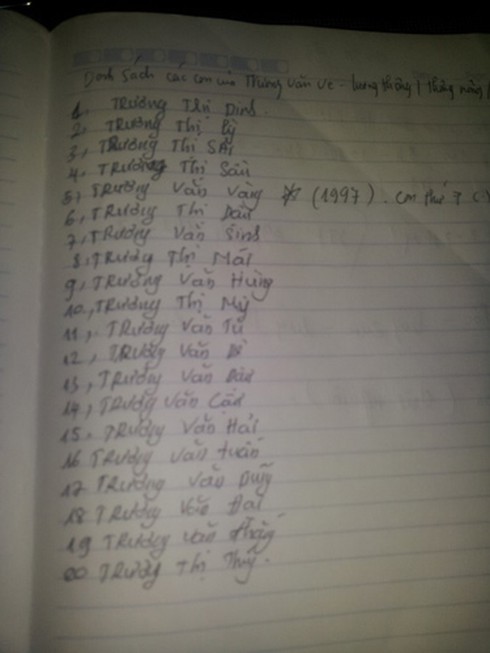 Danh Sách các con của Trương Văn Ve - lương tháng / tháng
1, TRương Thị Dinh.
2, TRương Thị Lý
3, TRương Thị SÁI
4, TRương Thị Sâu
5, TRương Văn Vàng (1997). con thứ 7
6, TRương Thị Dần
7, TRương Văn Sinh
8, TRương Thị Mái
9, TRương Văn Hùng
10, TRương Thị Mỹ
11, TRương Văn Tú
12, TRương Văn
13, TRương Văn
14, TRương Văn Cần
15. TRương Văn Hải
16 TRương Văn tuấn
17 TRương Văn Duy
18 TRương Văn Đại
19 TRương Văn thắng
TRương Thị Thuỷ.